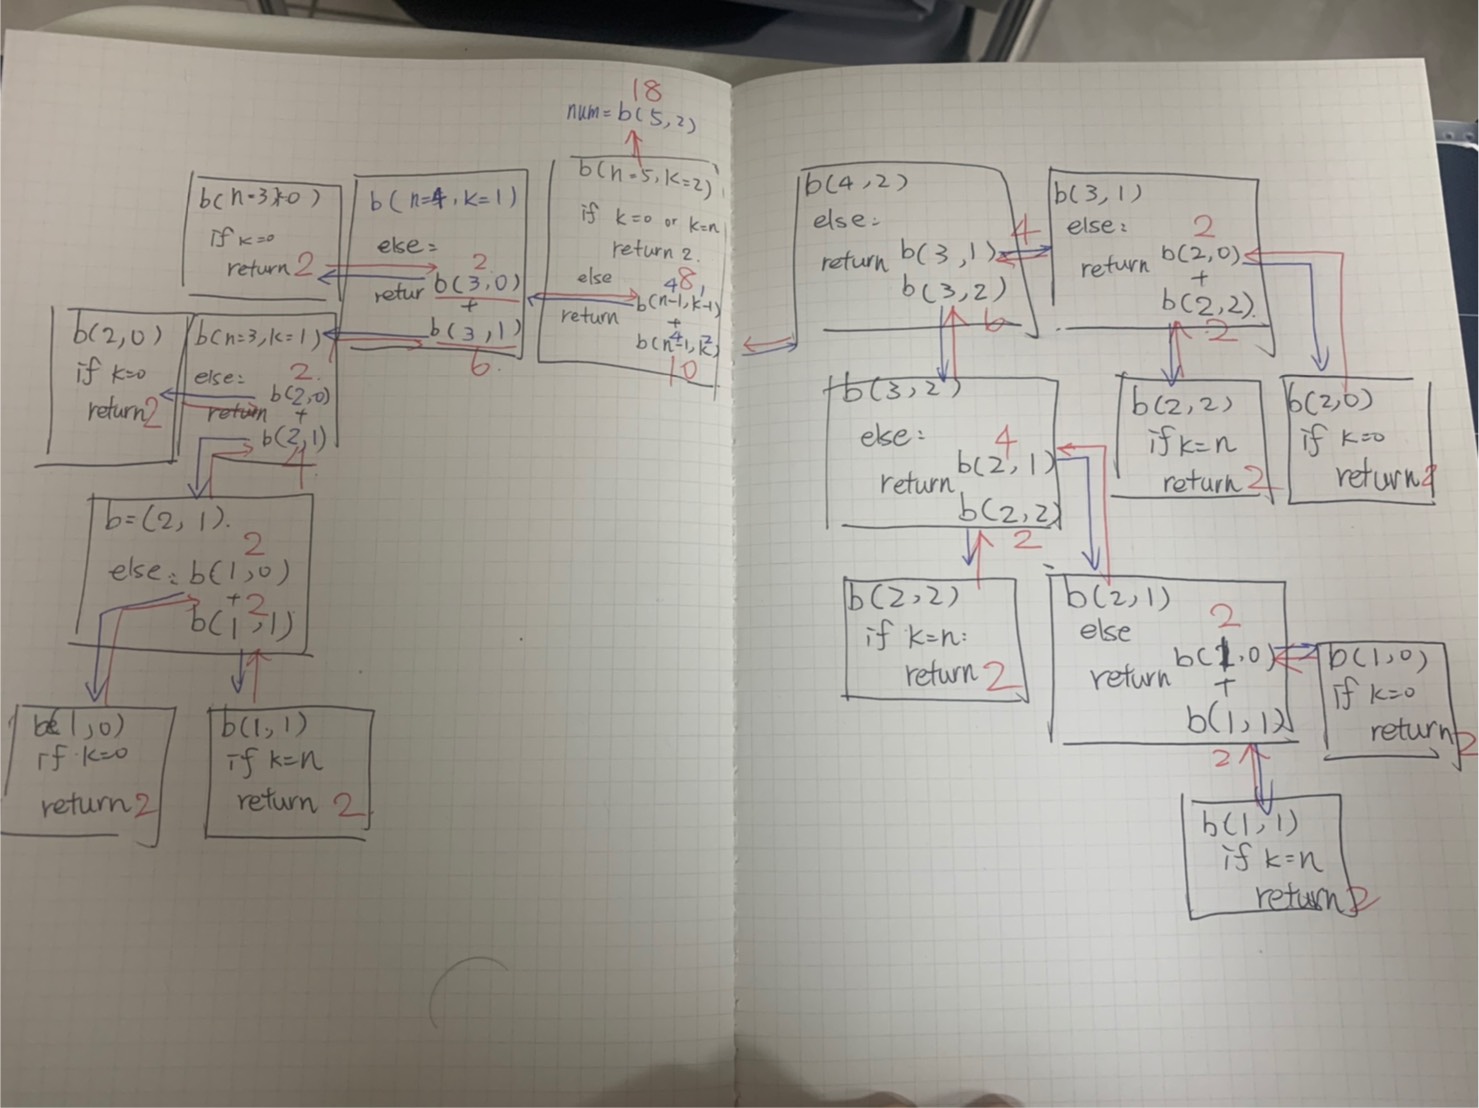 18
num=b(5,2)
b(n=5,k=2)
if k=0 or k=n
return 2.
else
4 8
b(n-1,k-1)
return
+
4 2
b(n-1,k)
10
b(n=4,k=1)
else=
2
retur b(3,0)
+
b(3,1)
6
b(n=3,k=0)
if k=0
return 2
b(n=3,k=1)
else:
2
b(2,0)
return +
b(2,1)
4
b(2,0)
if k=0
return 2
b=(2,1).
2
else: b(1,0)
+
2
b(1,1)
b(1,0)
if k=0
return 2
b(1,1)
if k=n
return 2
b(4,2)
else:
4
return b(3,1)
b(3,2)
6
b(3,1)
else:
2
return b(2,0)
+
b(2,2)
2
b(3,2)
else:
4
b(2,1)
return
b(2,2)
2
b(2,2)
if k=n
return 2
b(2,0)
if k=0
return 2
b(2,2)
if k=n:
return 2
b(2,1)
else
2
b(1,0)
return +
b(1,1)
2
b(1,0)
if k=0
return 2
b(1,1)
if k=n
return 2